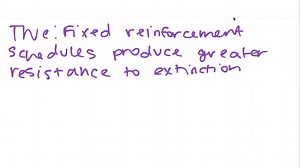 The: Fixed reinforcement
schedules produce greater
resistance to extinction